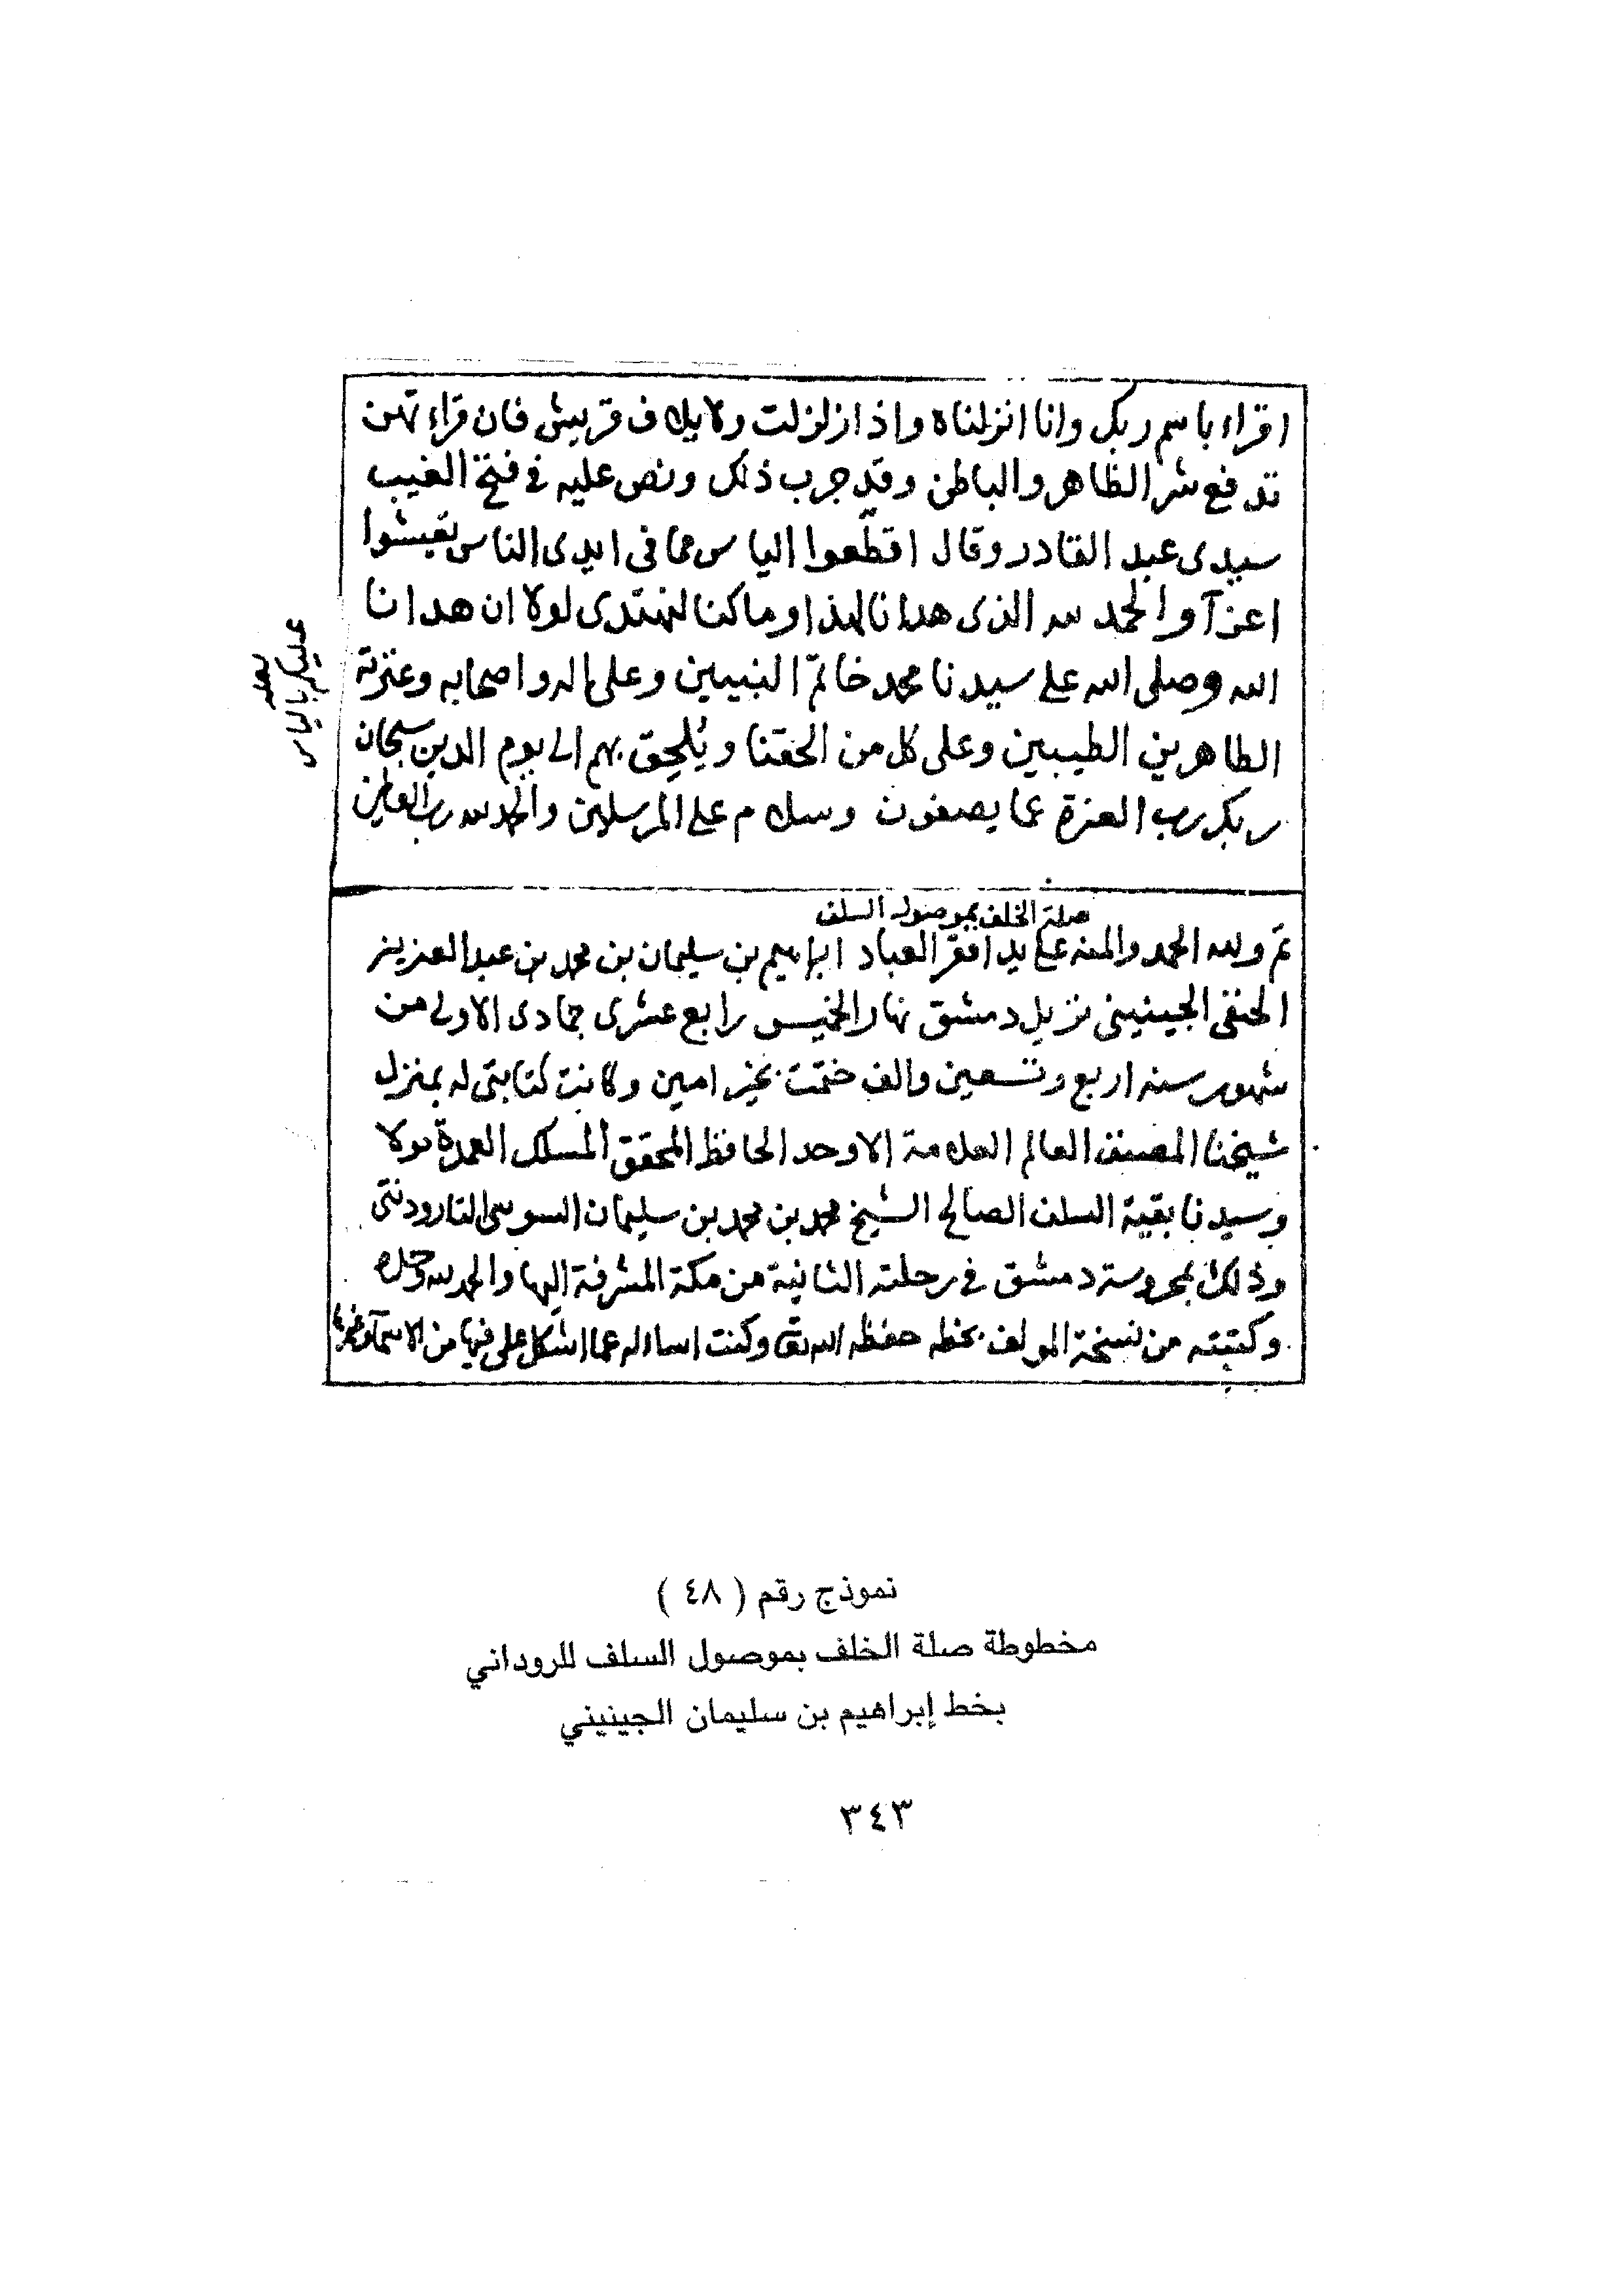 اقراء باسم ربك وانا انزلناه واذا زلزلت ولايلاف قريش فان قراءتهن
تدفع شر الظاهر والباطن وقد جرب ذلك ونص عليه في فتح الغيب
سيدى عبد القادر وقال اقطعوا الياس مما في ايدى الناس تعيشوا
اعزآ والحمد لله الذى هدانا لهذا وما كنا لنهتدى لولا ان هدانا
الله وصلى الله على سيدنا محمد خاتم النبيين وعلى اله واصحابه وعترته
الطاهرين الطيبين وعلى كل من الحقنا ويُلحِق بهم الى يوم الدين سبحان
ربك رب العزة عما يصفون وسلام على المرسلين والحمد لله رب العالمين
عليكم بالياس
صلة الخلف بموصول السلف
تم ولله الحمد والمنه على يد افقر العباد ابراهيم بن سليمان بن محمد بن عبد العزيز
الحنفى الجينينى نزيل دمشق نهار الخميس رابع عشرى جمادى الاولى من
شهور سنه اربع وتسعين والف ختمت بخير امين وكانت كتابتى له بمنزل
شيخنا المصنف العالم العلامة الاوحد الحافظ المحقق المسلك العمدة مولا
وسيدنا بقية السلف الصالح الشيخ محمد بن محمد بن سليمان السوسى التارودنتى
وذلك بمحروسة دمشق في رحلته الثانية من مكة المشرفة اليها والحمد لله وحده
وكتبته من نسخة المولف بخطه حفظه الله تعالى وكنت اساله عما اشكل على فيها من الاسمآ وغيرها
نموذج رقم ( ٤٨ )
مخطوطة صلة الخلف بموصول السلف للروداني
بخط إبراهيم بن سليمان الجينيني
٣٤٣